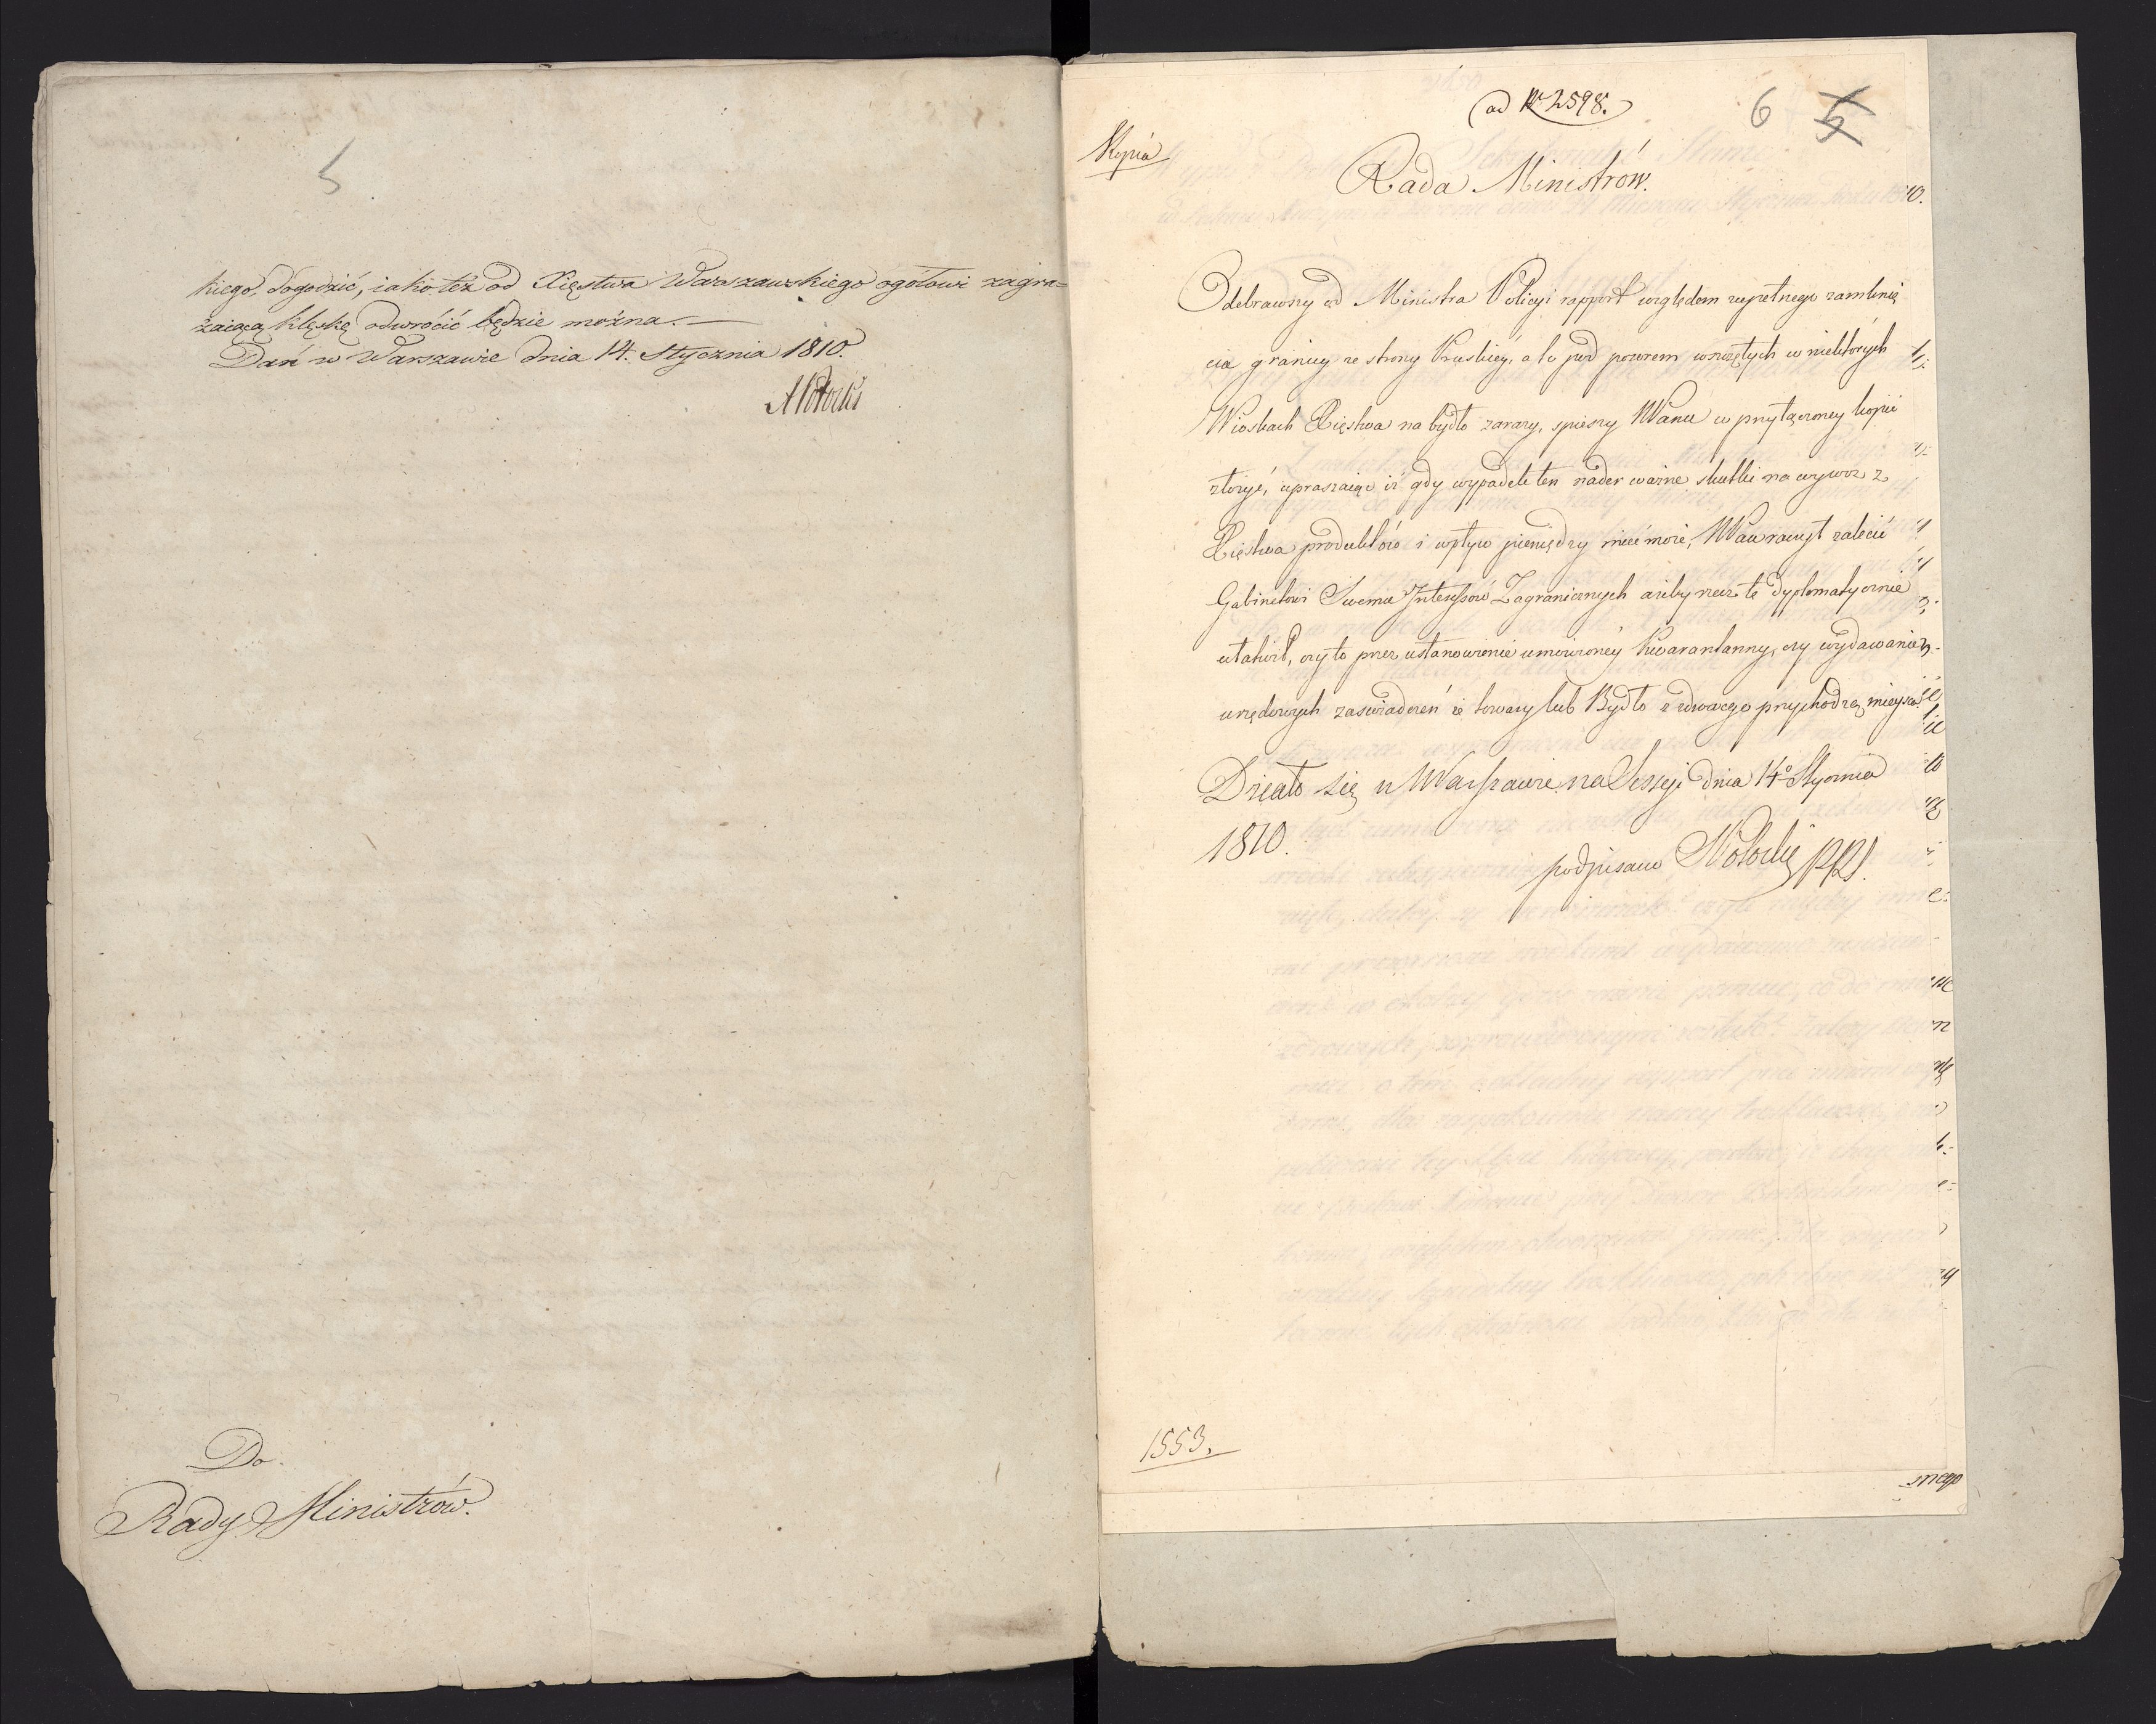 5
kiego, dogodzić, iako też od Xięstwa Warszawskiego ogółowi zagra=
żaiącą klęskę odwrócić będzie można.—
Dań w Warszawie dnia 14. Stycznia 1810.
APotocki
Do
Rady Ministrów.
ad Nr 2598.
6 5
Kopia
Rada Ministrów.
Odebrawszy od Ministra Policyi rapport względem zupełnego zamknię
cia granicy ze strony Pruskiey, a to pod pozorem wszczętych w niektórych
Wioskach Xięstwa na bydło zarazy, spieszy WPanu w przyłączoney kopii
złożyć, upraszaiąc iż gdy wypadek ten nader ważne skutki na wywoz z
Xięstwa produktów i wpływ pieniędzy mieć może, WPan raczył zalecić
Gabinetowi Swemu Interessów Zagranicznych ażeby rzecz tę dyplomatycznie
ułatwił, czyto przez ustanowienie umówioney Kwarantanny, czy wydawanie
urzędowych zaświadczeń że towary lub Bydło z zdrowego przychodzą mieysca.
Działo się w Warszawie na Sessyi dnia 14o Stycznia
1810.
podpisano Potocki PRS.
1553.
snego